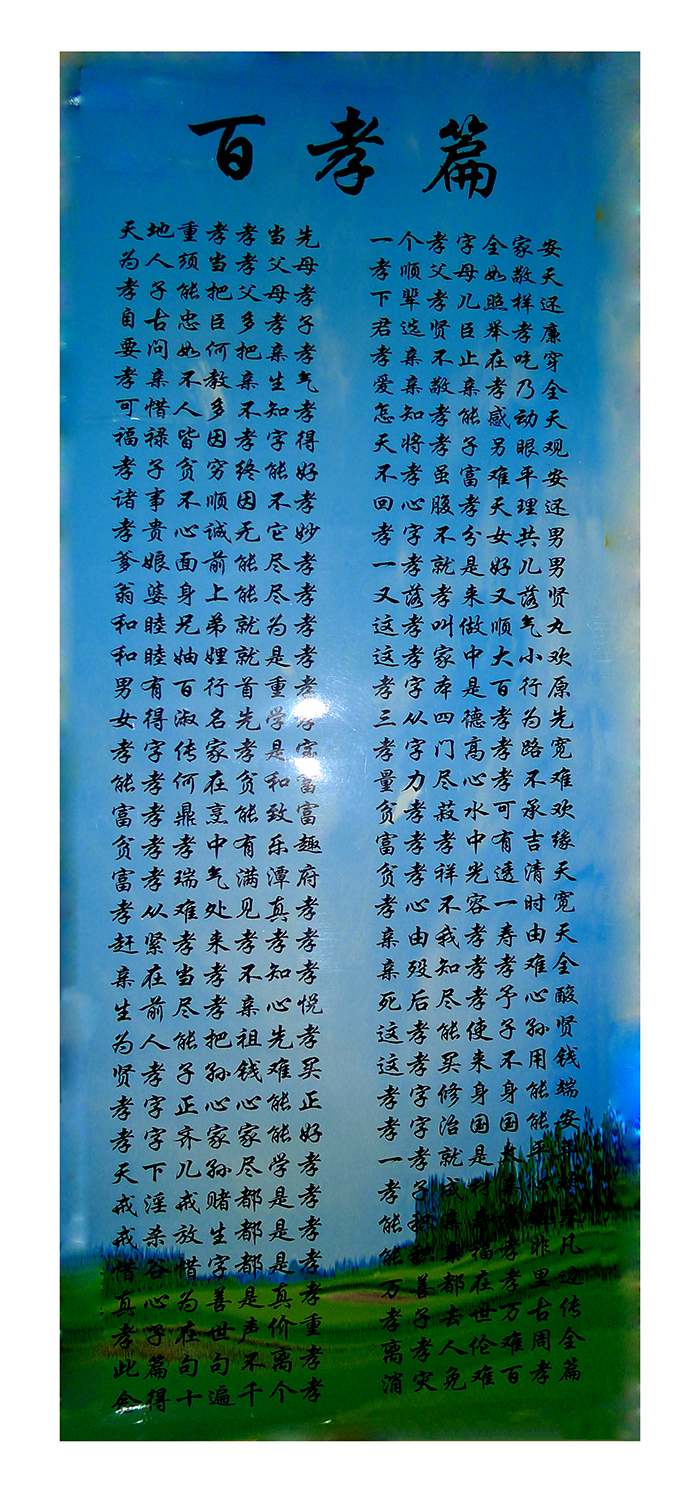 百孝篇
天地重孝孝当先 一个孝字全家安
为人须当孝父母 孝顺父母如敬天
孝子能把父母孝 下辈孝儿照样还
自古忠臣多孝子 君选贤臣举孝廉
要问如何把亲孝 孝亲不止在吃穿
孝亲不教亲生气 爱亲敬亲孝乃全
可惜人多不知孝 怎知孝能感动天
福禄皆因孝字得 天将孝子另眼观
孝子贫穷终能好 不孝虽富难平安
诸事不顺因不孝 回心腹孝天理还
孝贵心诚无它妙 孝字不分女共男
爹娘面前能尽孝 一孝就是好儿男
翁婆身上能尽孝 又落孝来又落贤
和睦兄弟就为孝 这孝叫做顺气九
和睦妯娌就是孝 这孝家中大小欢
男有百行首重孝 孝字本是百行原
女得淑名先学孝 三从四德孝为先
孝字传家孝是 孝字门高孝路宽
能孝何在贫和富 量力尽心孝不难
富孝鼎烹能致富 贫孝菽水可承欢
贫孝孝中有乐趣 富孝孝中有吉缘
富孝瑞气满潭府 贫孝祥光透清天
孝从难处见真孝 孝心不容一时宽
赶紧孝来孝孝孝 亲由我孝寿由天
亲在当孝不知孝 亲殁知孝孝难全
生前尽孝亲心悦 死后尽孝子心酸
为人能把祖先孝 这孝能使子孙贤
贤孝子孙钱难买 这孝买来不用钱
孝字正心心能正 孝字修身身能端
孝字齐家家能好 孝字治国国能安
天下儿孙尽学孝 一孝就是平
戒淫戒赌都是孝 孝子成
戒杀放生都是孝 能积亲
惜谷惜字都是孝 能积福非凡
真心为善是真孝 万善都在孝里边
孝子在世声价重 孝子去世万古传
此篇句句不离孝 离孝人伦难周全
念得十遍千个孝 消灾免难百孝篇